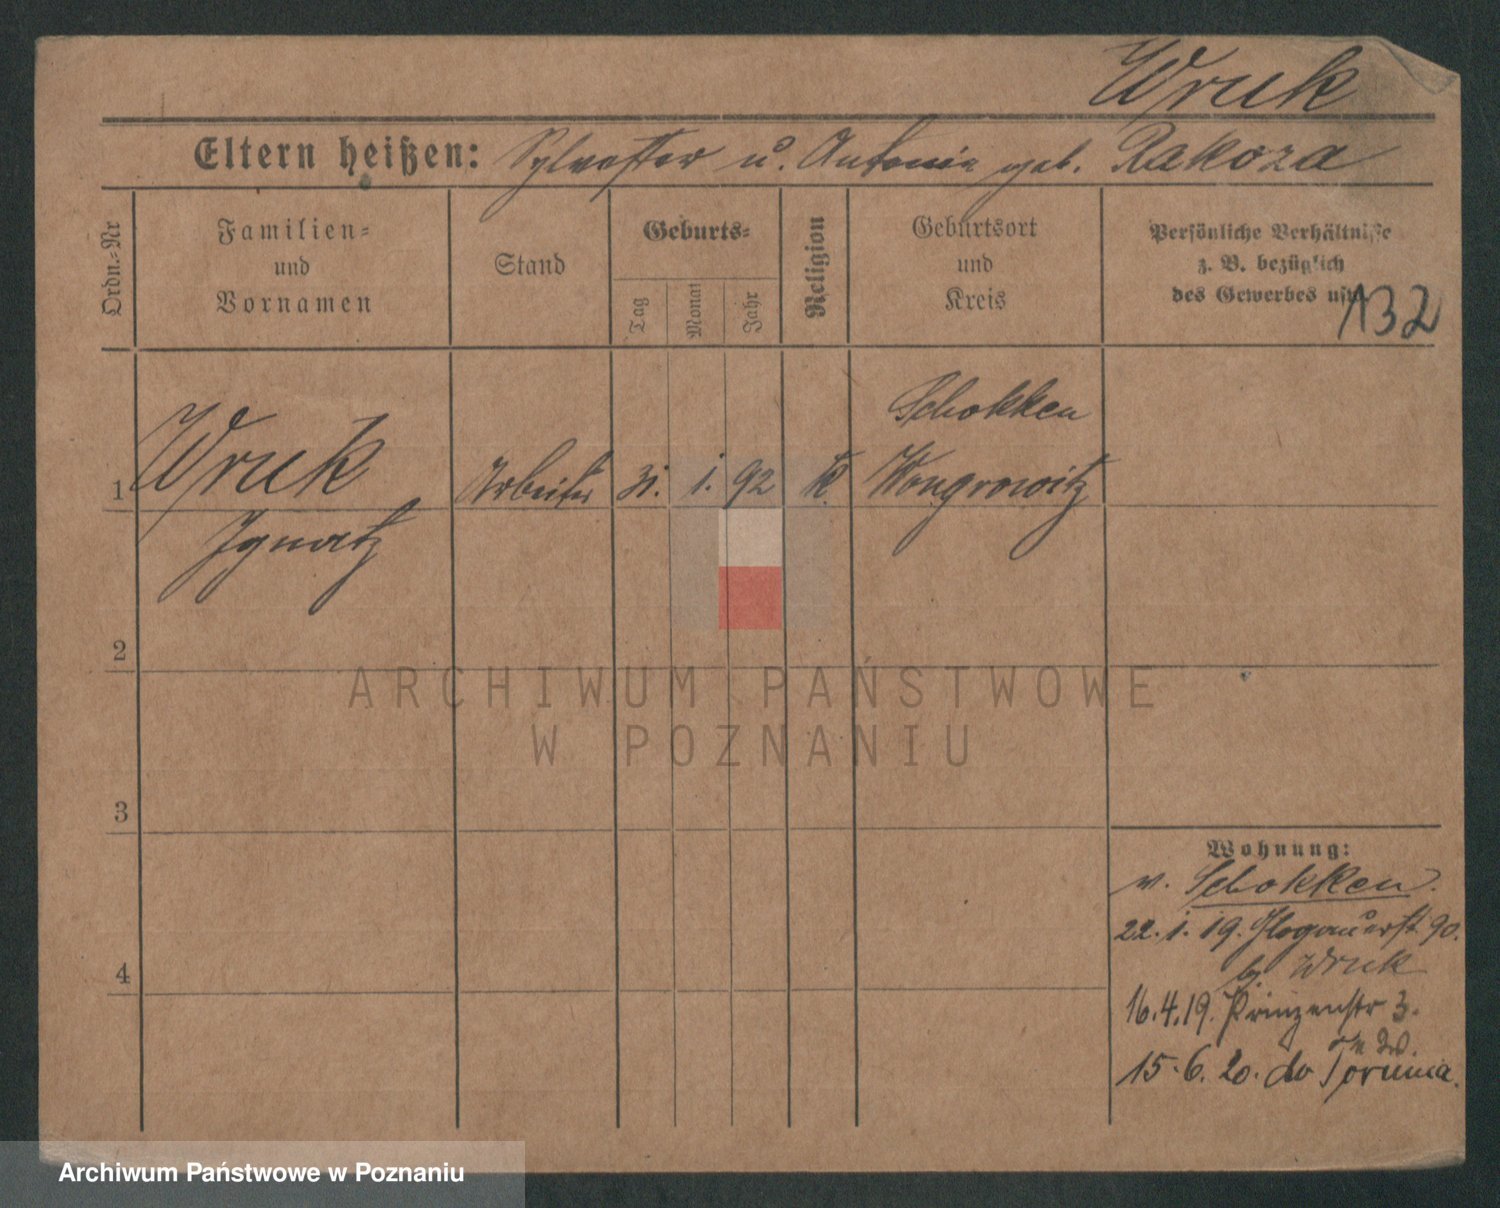 Wruk
Eltern heißen: Sylvester u. Antonie geb. Rakoza
Ordn.-Nr
Familien-
und
Vornamen
Stand
Geburts-
Tag
Monat
Jahr
Religion
Geburtsort
und
Kreis
Persönliche Verhältnisse
z. B. bezüglich
des Gewerbes usw.
132
Schokken
1 Wruk Arbeiter 31. 1. 92 k Wongrowitz
Ignatz
2
3
4
ARCHIWUM PAŃSTWOWE
W POZNANIU
Wohnung:
v. Schokken.
22.1.19. Glogauerst. 90.
b. Wruk
16.4.19. Prinzenstr 3.
15.6.20. do Torunia.
Archiwum Państwowe w Poznaniu